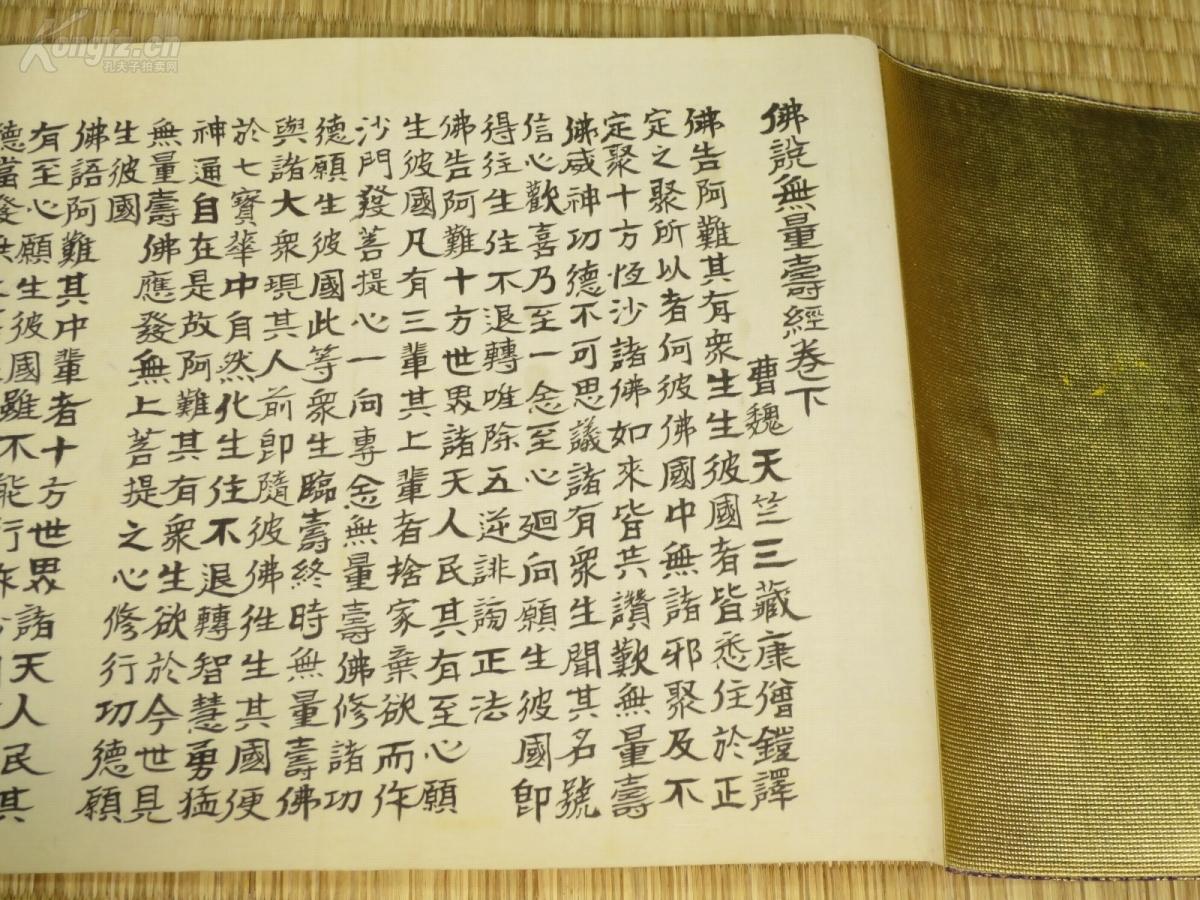 佛說無量壽經卷下
曹魏天竺三藏康僧鎧譯
佛告阿難其有衆生生彼國者皆悉住於正
定之聚所以者何彼佛國中無諸邪聚及不
定聚十方恆沙諸佛如來皆共讚歎無量壽
佛威神功德不可思議諸有衆生聞其名號
信心歡喜乃至一念至心廻向願生彼國即
得往生住不退轉唯除五逆誹謗正法
佛告阿難十方世界諸天人民其有至心願
生彼國凡有三輩其上輩者捨家棄欲而作
沙門發菩提心一向專念無量壽佛修諸功
德願生彼國此等衆生臨壽終時無量壽佛
與諸大衆現其人前即隨彼佛往生其國便
於七寶華中自然化生住不退轉智慧勇猛
神通自在是故阿難其有衆生欲於今世見
無量壽佛應發無上菩提之心修行功德願
生彼國
佛語阿難其中輩者十方世界諸天人民其
有至心願生彼國雖不能行作
德當發
Kongfz.cn
孔夫子拍卖网